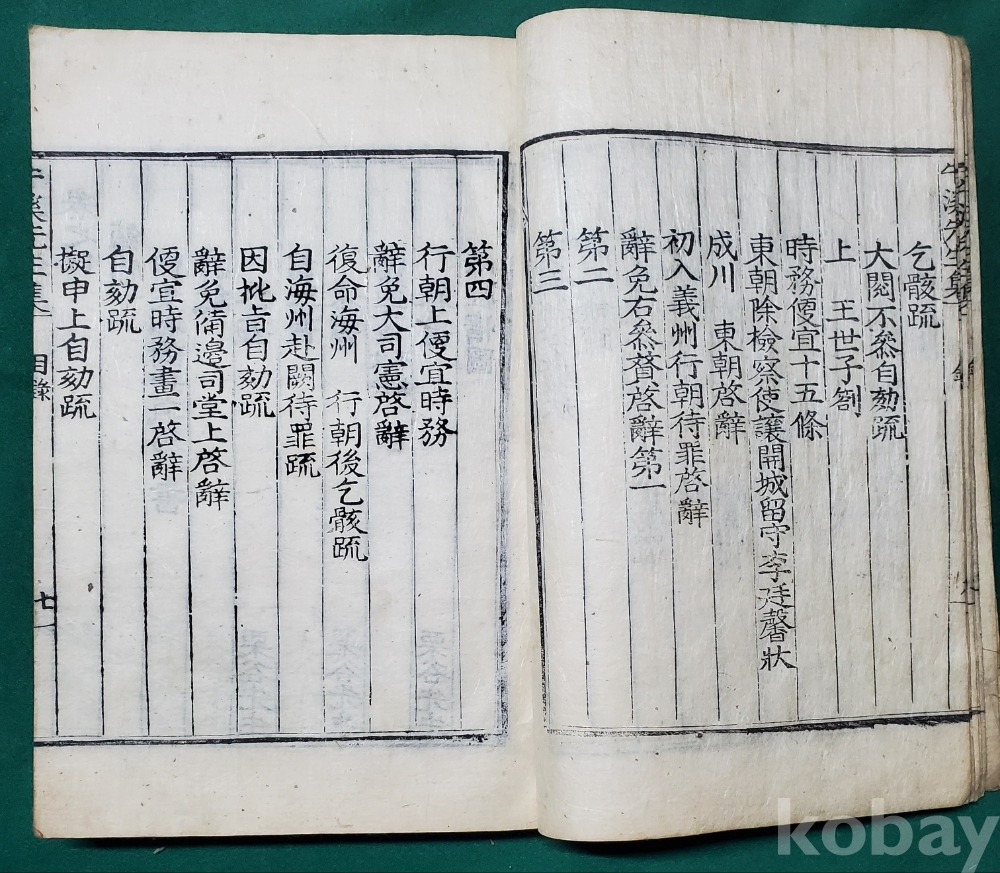 乞骸疏
大閱不參自劾疏
上　王世子劄
時務便宜十五條
東朝除檢察使讓開城留守李廷馨狀
成川　東朝啓辭
初入義州行朝待罪啓辭
辭免右參贊啓辭第一
第二
第三
第四
行朝上便宜時務
辭免大司憲啓辭
復命海州　行朝後乞骸疏
自海州赴闕待罪疏
因批旨自劾疏
辭免備邊司堂上啓辭
便宜時務畫一啓辭
自劾疏
擬申上自劾疏
牛溪先生集　目錄　七
kobay